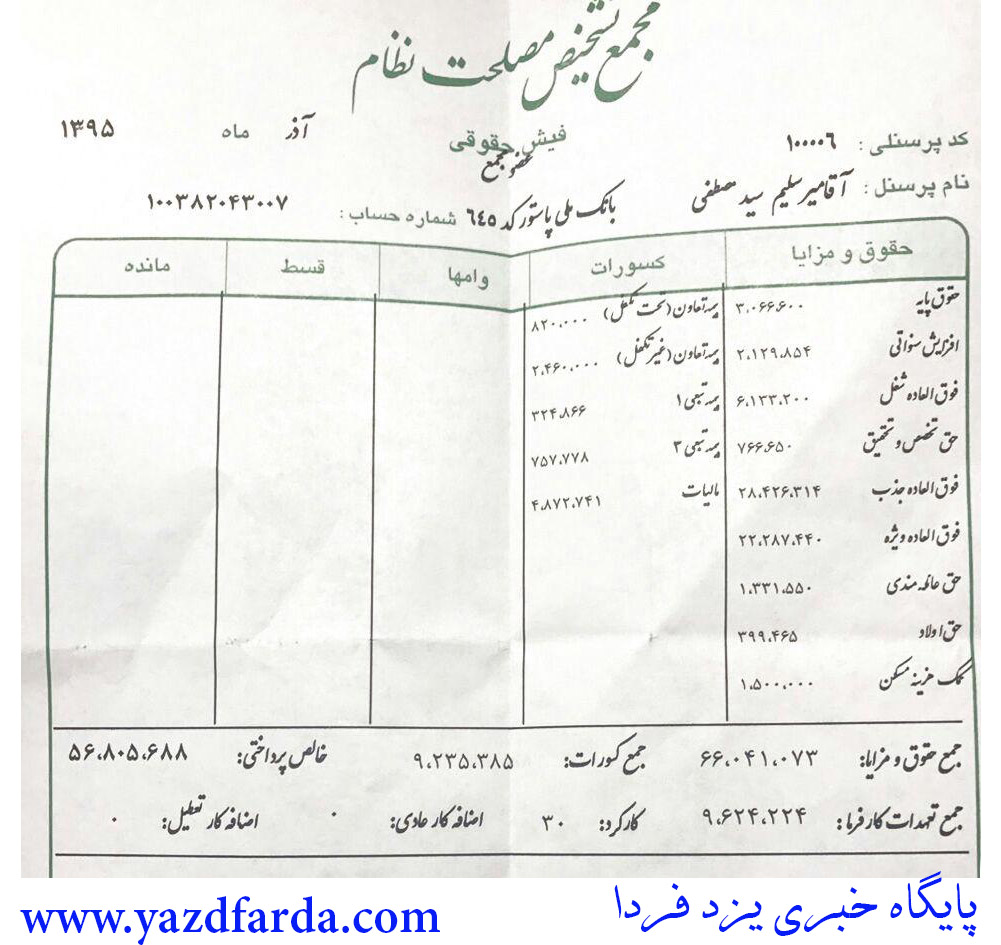 مجمع تشخیص مصلحت نظام
کد پرسنلی: ۱۰۰۰۰۶ فیش حقوقی آذر ماه ۱۳۹۵
عضو مجمع
نام پرسنل: آقامیرسلیم سید مصطفی بانک ملی پاستور کد ۶۴۵ شماره حساب: ۱۰۰۳۸۲۰۴۳۰۰۷
حقوق و مزایا کسورات وامها قسط مانده
حقوق پایه ۳،۰۶۶،۶۰۰ بیمه تعاون (تحت تکفل) ۸۲۰،۰۰۰
افزایش سنواتی ۲،۱۲۹،۸۵۴ بیمه تعاون (غیر تکفل) ۲،۴۶۰،۰۰۰
فوق العاده شغل ۶،۱۳۳،۲۰۰ بیمه تبعی ۱ ۳۲۴،۸۶۶
حق تخصص و تحقیق ۷۶۶،۶۵۰ بیمه تبعی ۳ ۷۵۷،۷۷۸
فوق العاده جذب ۲۸،۴۲۶،۳۱۴ مالیات ۴،۸۷۲،۷۴۱
فوق العاده ویژه ۲۲،۲۸۷،۴۴۰
حق عائله مندی ۱،۳۳۱،۵۵۰
حق اولاد ۳۹۹،۴۶۵
کمک هزینه مسکن ۱،۵۰۰،۰۰۰
جمع حقوق و مزایا: ۶۶،۰۴۱،۰۷۳ جمع کسورات: ۹،۲۳۵،۳۸۵ خالص پرداختی: ۵۶،۸۰۵،۶۸۸
جمع تعهدات کارفرما: ۹،۶۲۴،۲۲۴ کارکرد: ۳۰ اضافه کار عادی: ۰ اضافه کار تعطیل: ۰
پایگاه خبری یزد فردا www.yazdfarda.com